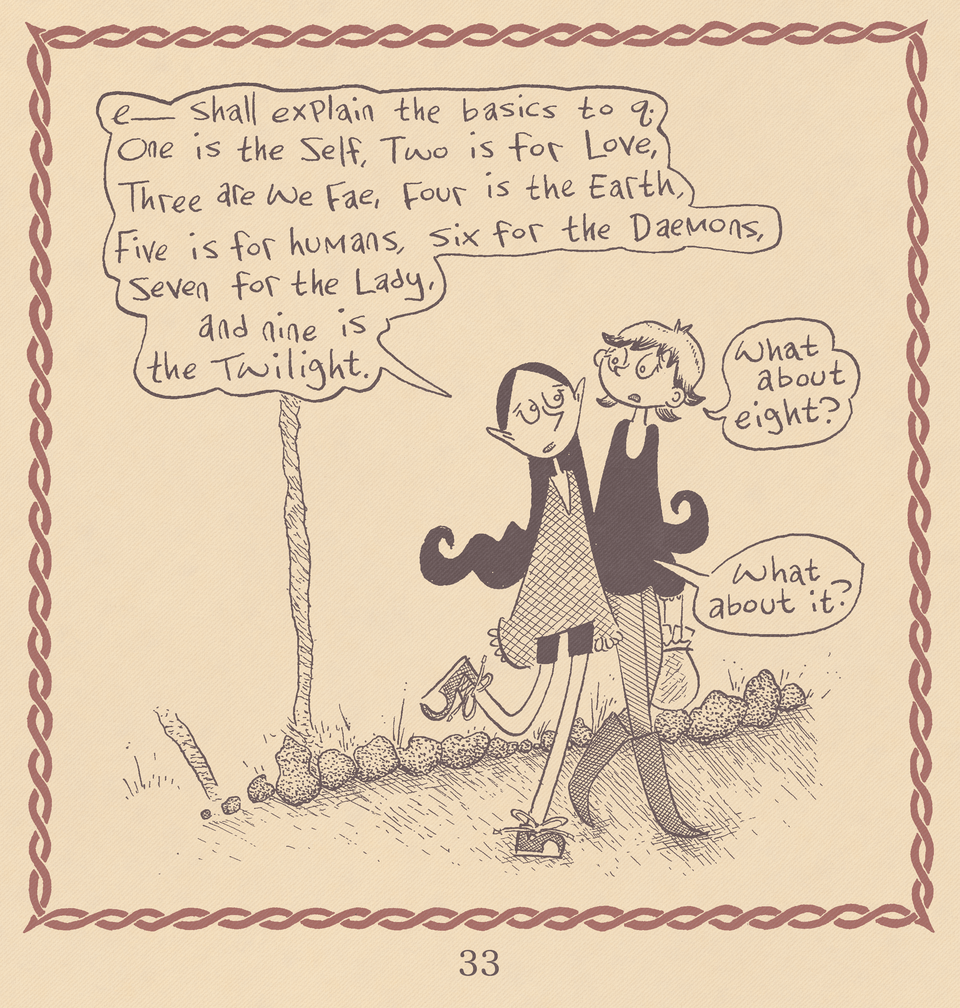 e— shall explain the basics to q.
One is the Self, Two is for Love,
Three are We Fae, Four is the Earth,
Five is for humans, six for the Daemons,
Seven for the Lady,
and nine is
the Twilight.
What
about
eight?
What
about it?
33